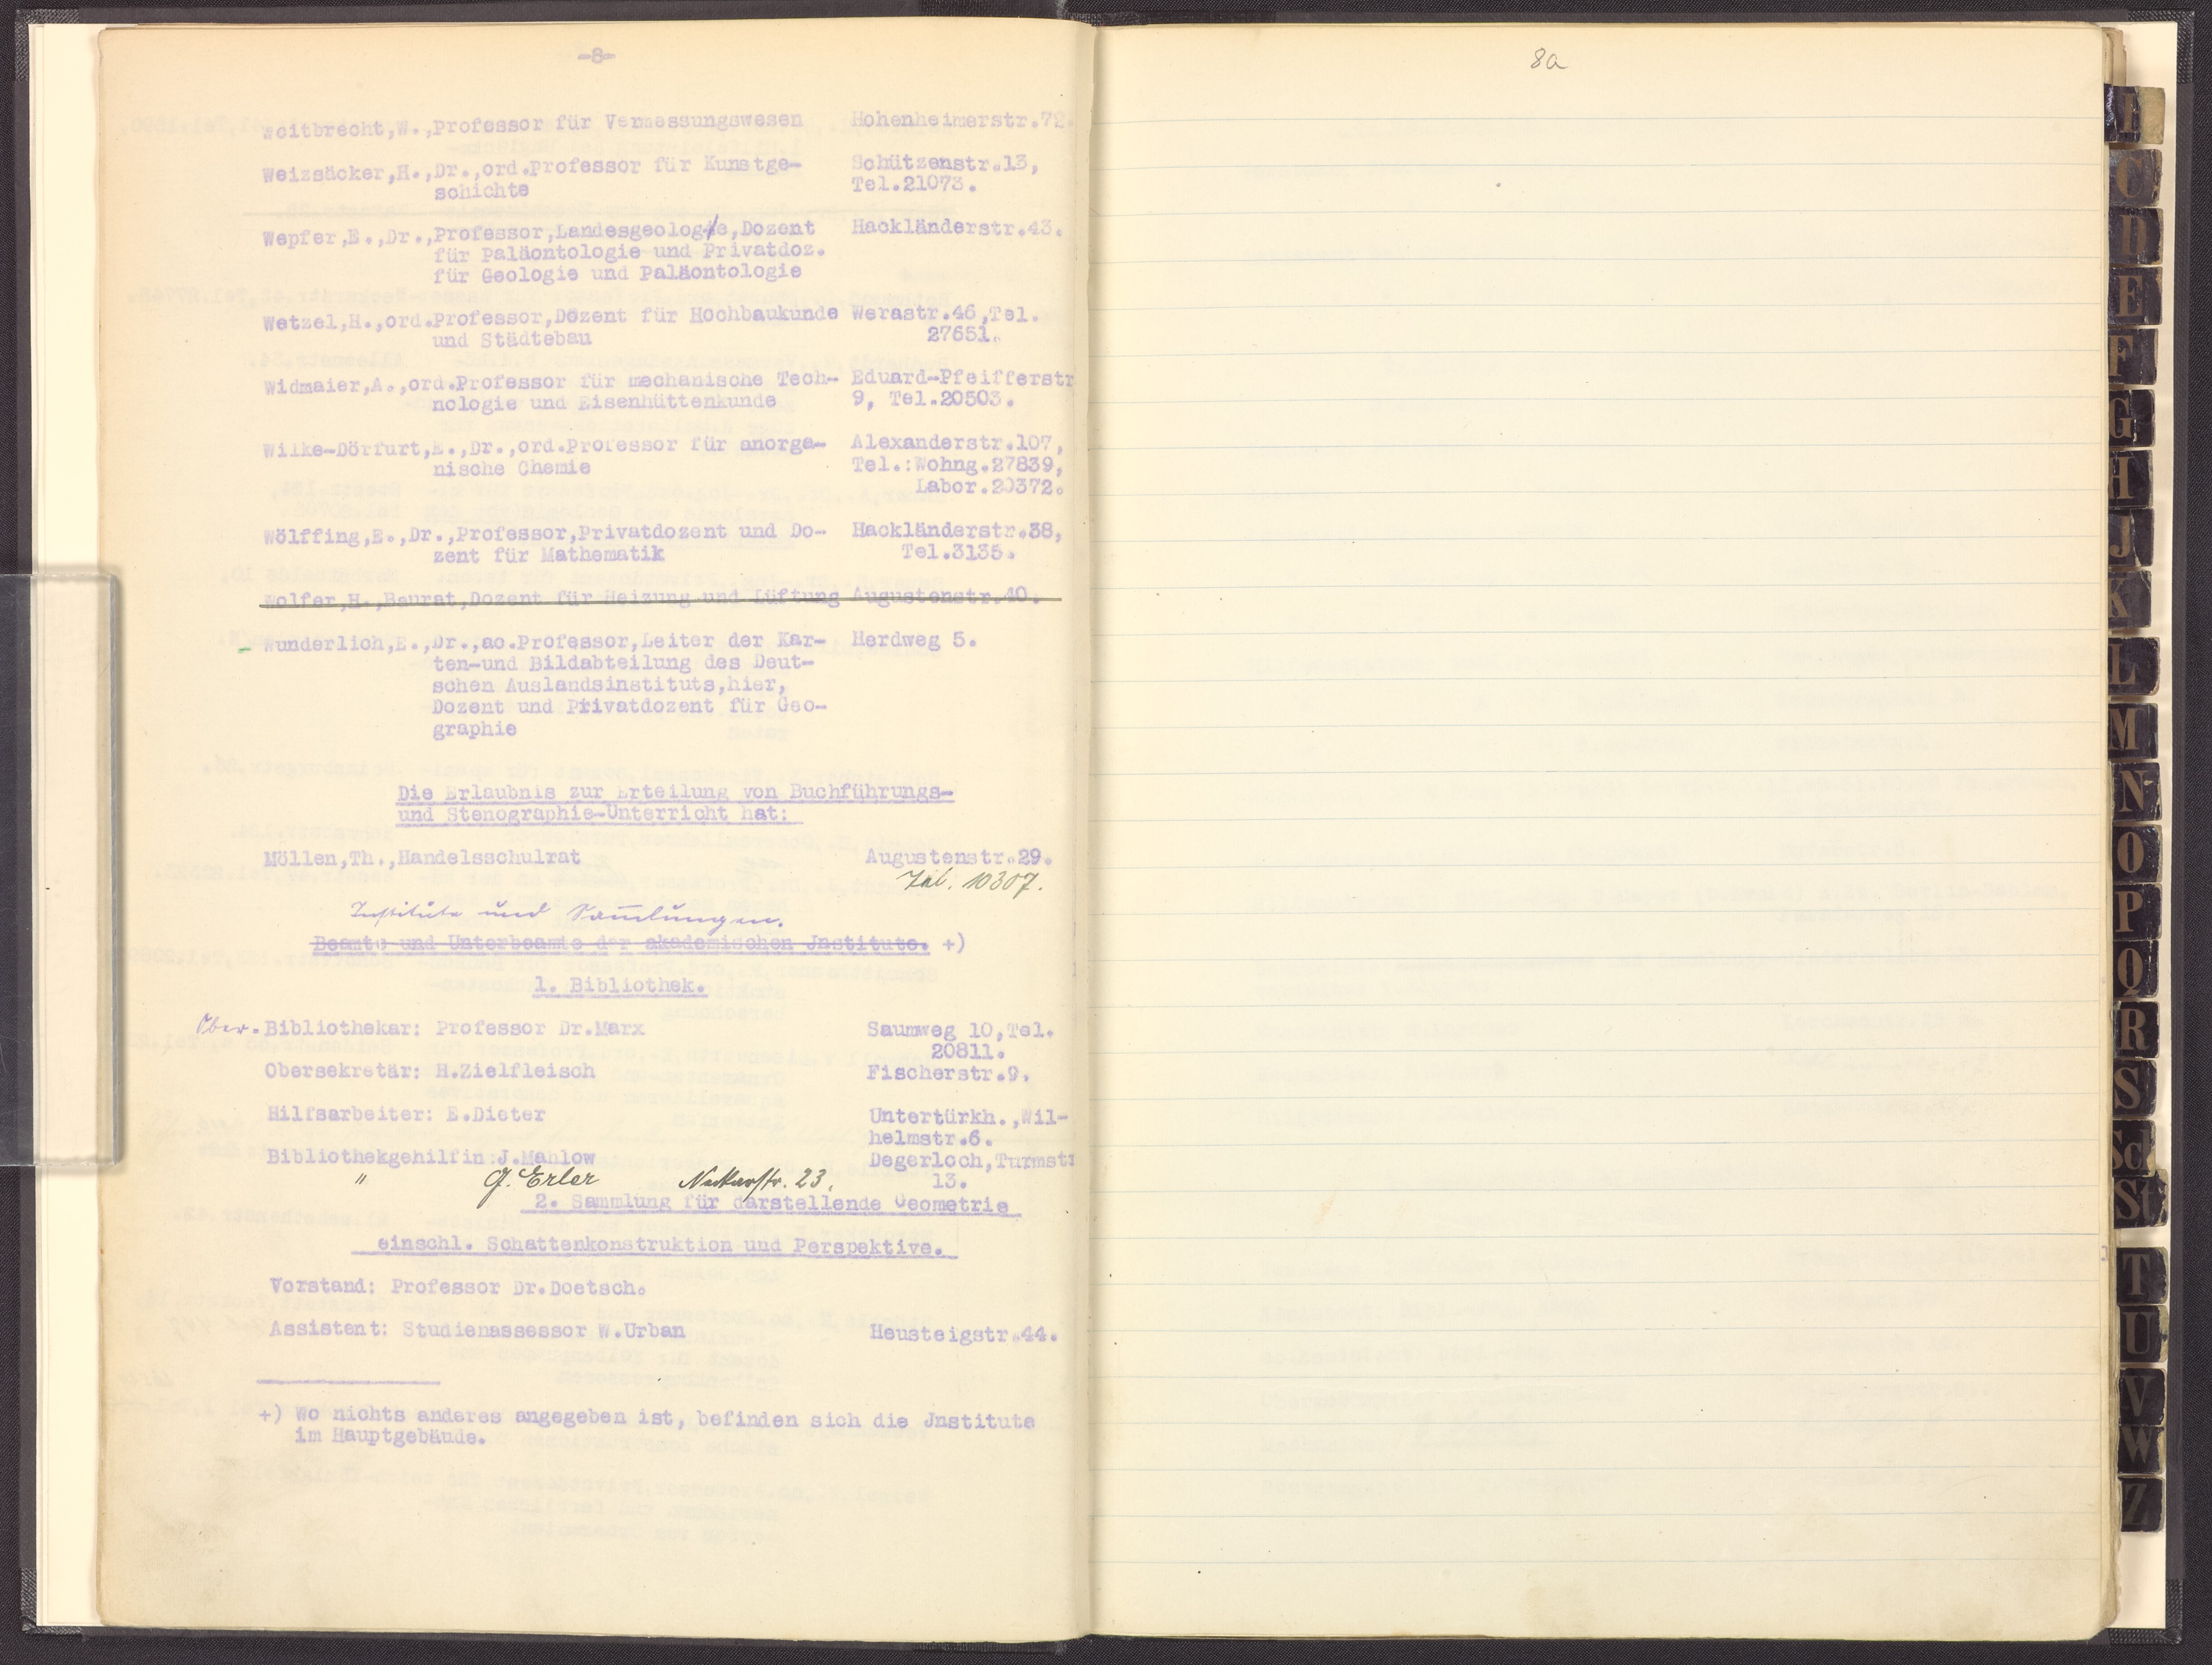 -8-
Weitbrecht,W.,Professor für Vermessungswesen Hohenheimerstr.72.
Weizsäcker,H.,Dr.,ord.Professor für Kunstge- Schützenstr.13,
schichte Tel.21073.
Wepfer,E.,Dr.,Professor,Landesgeologe,Dozent Hackländerstr.43.
für Paläontologie und Privatdoz.
für Geologie und Paläontologie
Wetzel,H.,ord.Professor,Dozent für Hochbaukunde Werastr.46,Tel.
und Städtebau 27651.
Widmaier,A.,ord.Professor für mechanische Tech- Eduard-Pfeifferstr
nologie und Eisenhüttenkunde 9, Tel.20503.
Wilke-Dörfurt,E.,Dr.,ord.Professor für anorga- Alexanderstr.107,
nische Chemie Tel.:Wohng.27839,
Labor.20372.
Wölffing,E.,Dr.,Professor,Privatdozent und Do- Hackländerstr.38,
zent für Mathematik Tel.3135.
Wolfer,H.,Baurat,Dozent für Heizung und Lüftung Augustenstr.40.
Wunderlich,E.,Dr.,ao.Professor,Leiter der Kar- Herdweg 5.
ten-und Bildabteilung des Deut-
schen Auslandsinstituts,hier,
Dozent und Privatdozent für Geo-
graphie
Die Erlaubnis zur Erteilung von Buchführungs-
und Stenographie-Unterricht hat:
Möllen,Th.,Handelsschulrat Augustenstr.29.
Tel. 10307.
Institute und Sam̄lungen.
Beamte und Unterbeamte der akademischen Jnstitute. +)
1. Bibliothek.
Ober-Bibliothekar: Professor Dr.Marx Saumweg 10,Tel.
20811.
Obersekretär: H.Zielfleisch Fischerstr.9.
Hilfsarbeiter: E.Dieter Untertürkh.,Wil-
helmstr.6.
Bibliothekgehilfin:J.Mahlow Degerloch,Turmstr
13.
" G. Erler Neckarstr. 23.
2. Sammlung für darstellende Geometrie
einschl. Schattenkonstruktion und Perspektive.
Vorstand: Professor Dr.Doetsch.
Assistent: Studienassessor W.Urban Heusteigstr.44.
+) Wo nichts anderes angegeben ist, befinden sich die Jnstitute
im Hauptgebäude.
8a
C
D
E
F
G
H
J
K
L
M
N
O
P
Q
R
S
Sch
St
T
U
V
W
Z